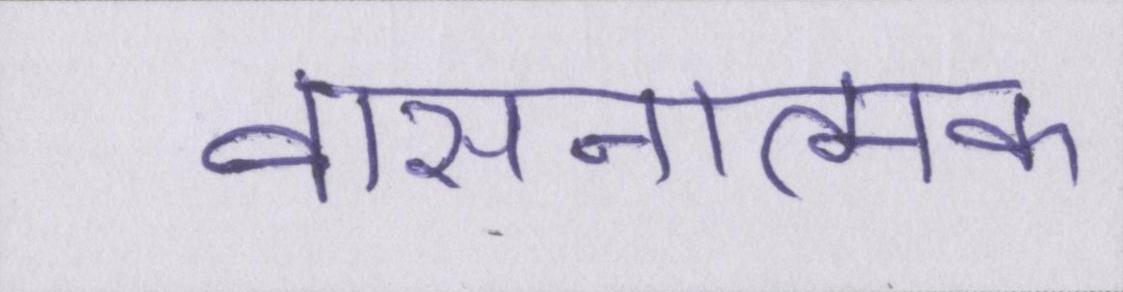 वासनात्मक